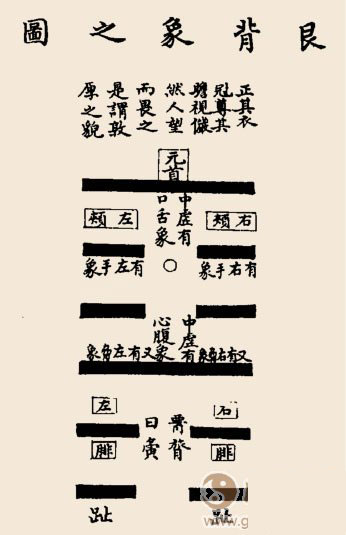 艮背象之圖
正其衣
冠尊其
瞻視儼
然人望
而畏之
是謂敦
厚之貌
元首
中虛有
口舌象
右頰
左頰
有右手象
有左手象
中虛有
心腹象
又有右象
又有左象
右
左
膂脊
曰夤
腓
腓
趾
趾
www.g